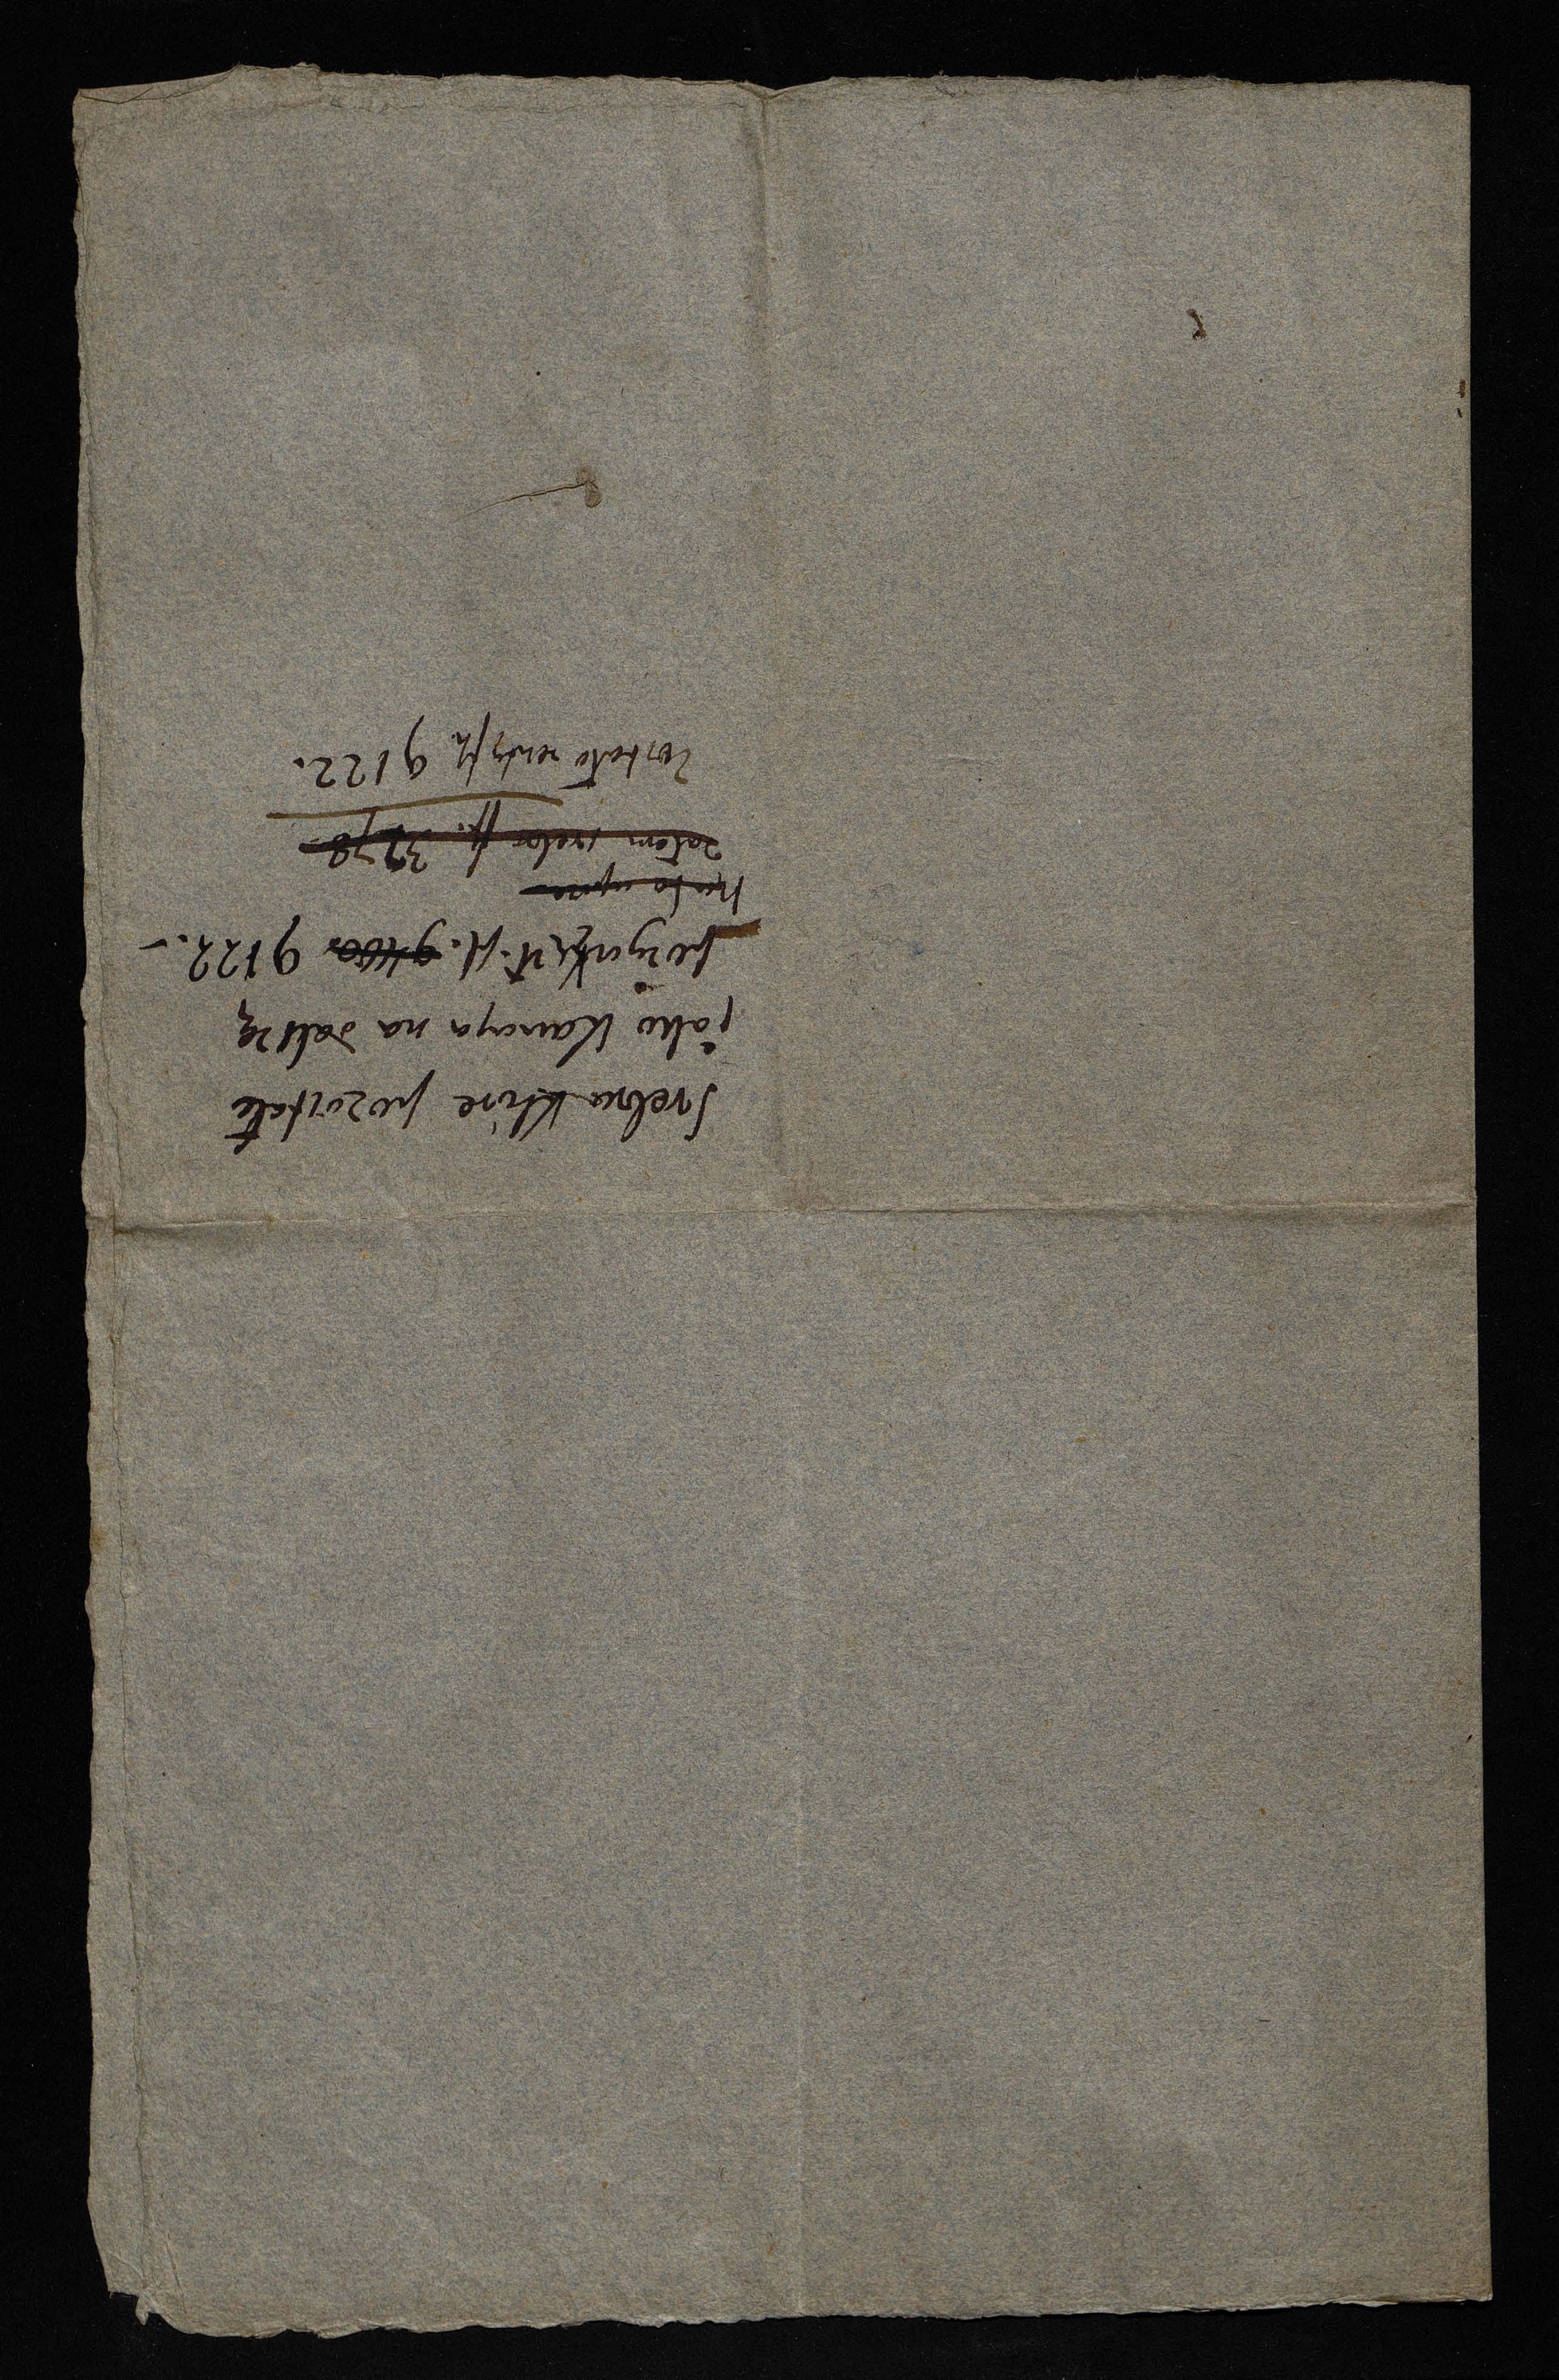 Srebra które pozostałe
jako Kaucya na dalszą
pożyczkę zł. 9122.–
zatem srebra 3778
Zostało 9122.